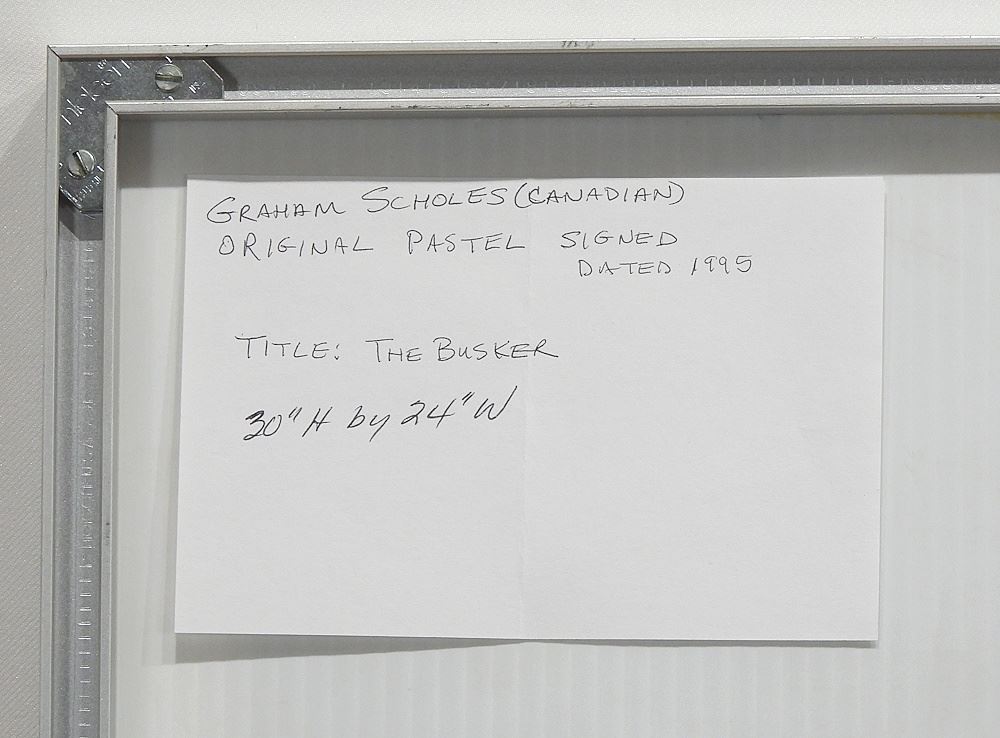 GRAHAM SCHOLES (CANADIAN)
ORIGINAL PASTEL SIGNED
DATED 1995
TITLE: THE BUSKER
30" H by 24" W